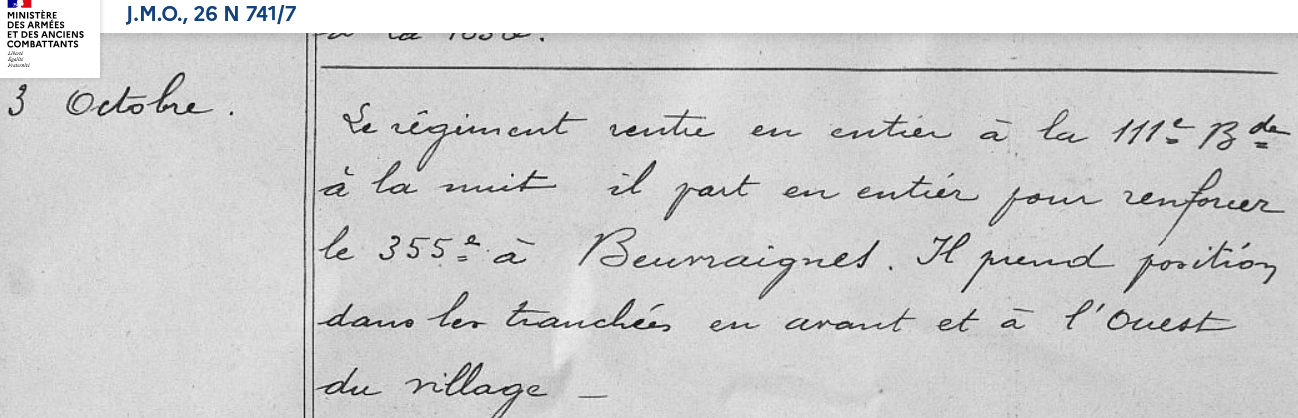 MINISTÈRE
DES ARMÉES
ET DES ANCIENS
COMBATTANTS
Liberté
Égalité
Fraternité
J.M.O., 26 N 741/7
3 Octobre.
Le régiment rentre en entier à la 111e Bde
à la nuit il part en entier pour renforcer
le 355e à Beuvraignes. Il prend position
dans les tranchées en avant et à l'Ouest
du village _